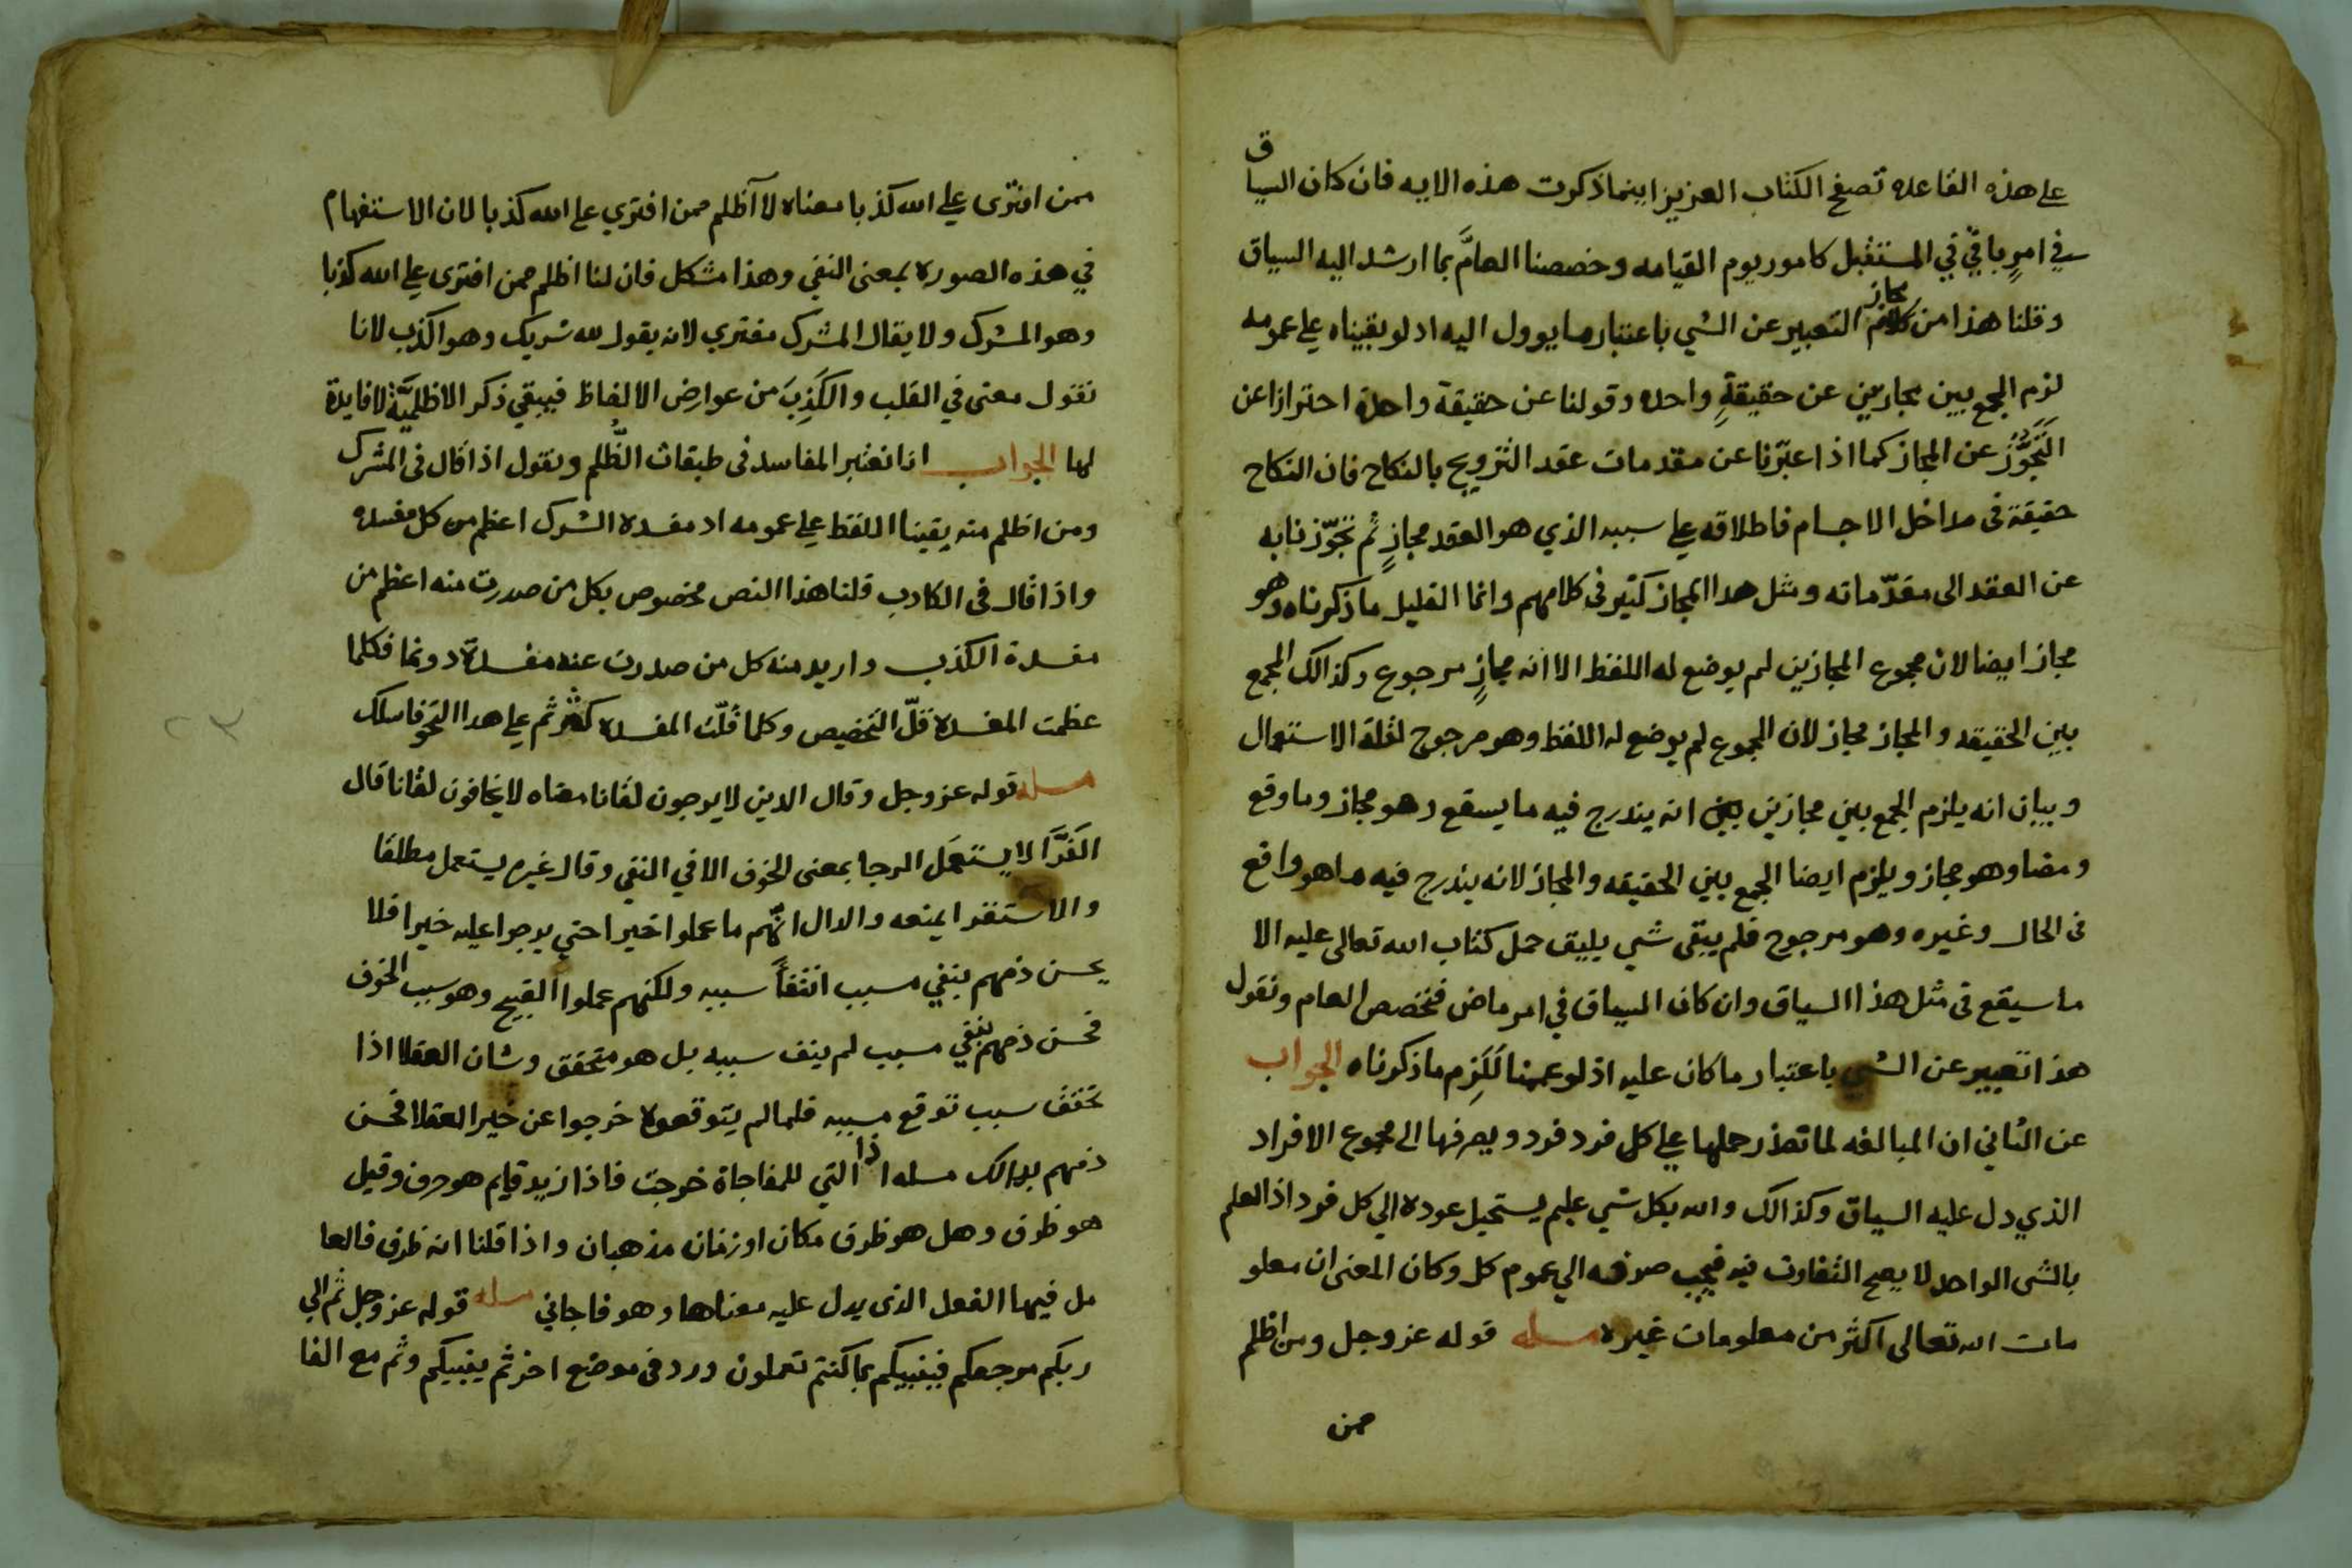 على هذه القاعده تصفح الكتاب العزيز اينما ذكرت هذه الايه فان كان السياق
في امرٍ باقٍ في المستقبل كامور يوم القيامه وخصصنا العامَّ بما ارشد اليه السياق
وقلنا هذا من مجاز التعبير عن الشي باعتبار ما يوول اليه اد لو بقيناه على عمومه
لزم الجمع بين مجازين عن حقيقةٍ واحده وقولنا عن حقيقة واحدة احترازا عن
التَّجَوُّز عن المجاز كما اذا عبّرنا عن مقدمات عقد التزويج بالنكاح فان النكاح
حقيقة فى مداخل الاجسام فاطلاقه على سببه الذي هو العقد مجازٍ ثم تجوّزنا به
عن العقد الى مقدّماته ومثل هدا المجاز كثير فى كلامهم وانما القليل ما ذكرناه وهو
مجاز ايضا لان مجموع المجازين لم يوضع له اللفظ الا انه مجازٍ مرجوع وكذالك الجمع
بين الحقيقه والمجاز مجاز لان المجموع لم يوضع له اللفظ وهو مرجوح لقلة الاستعمال
وبيان انه يلزم الجمع بين مجازين بين انه يندرج فيه ما يسقع وهو مجاز وما وقع
ومضا وهو مجاز ويلزم ايضا الجمع بين الحقيقه والمجاز لانه يندرج فيه ما هو واقع
فى الحال وغيره وهو مرجوح فلم يبقى شي يليق حمل كتاب الله تعالى عليه الا
ما سيقع فى مثل هذا السياق وان كان السياق في امر ماض فنخصص العام ونقول
هذا تعبير عن الشي باعتبار ما كان عليه اذ لو عممنا لَلَزِم ما ذكرناه الجواب
عن الثاني ان المبالغه لما تعذر حملها على كل فرد فرد ويصرفها الى مجموع الافراد
الذي دل عليه السياق وكذالك والله بكل شي عليم يستحيل عوده الي كل فرد اذ العلم
بالشى الواحد لا يصح التفاوت فيه فيجب صرفه الي عموم كل وكان المعنى ان معلو
مات الله تعالى اكثر من معلومات غيره مسله قوله عز وجل ومن اظلم
ممن
ممن افترى على الله كذبا معناه لا أظلم ممن افتري على الله كذبا لان الاستفهام
في هذه الصوره بمعنى النفي وهذا مشكل فان لنا اظلم ممن افترى على الله كذبا
وهو المشرك ولا يقال المشرك مفتري لانه يقول لله شريك وهو الكذب لانا
نقول معنى في القلب والكَذِبَ من عوارض الالفاظ فيبقي ذكر الاظلميَّة لا فايدة
لها الجواب انا نعتبر المفاسد فى طبقات الظُّلم ونقول اذا قال فى المشرك
ومن اظلم منه بقينا اللفظ على عمومه اد مفسدة الشرك اعظم من كل مفسده
واذا قال فى الكادب قلنا هذا النص مخصوص بكل من صدرت منه اعظم من
مفسدة الكذب واريد منه كل من صدرت عنه مفسدة دونها فكلما
عظمت المفسدة قلّ التخصيص وكلما قلّت المفسده كثر ثم على هدا النحو فاسلك
مسله قوله عز وجل وقال الدين لا يرجون لقانا معناه لا يخافون لقانا قال
الفرَّا لا يستعمَل الرجا بمعنى الخوف الا في النفي وقال غيره يستعمل مطلقا
والاستقرا يمنعه والدال انّهم ما عملوا خيرا حتي يرجوا عليه خيرا فلا
يحسن ذمهم بنفي مسبب انتفأ سببه ولكنهم عملوا القبيح وهو سبب الخوف
فحسن ذمهم بنفي مسبب لم ينف سببه بل هو متحقق وشان العقلا اذا
تحقق سبب توقع مسببه فلما لم يتوقعوه خرجوا عن خير العقلا فحسن
ذمهم بدالك مسله اذا التي للمفاجاة خرجت فاذا زيد قايم هو حرف وقيل
هو ظرف وهل هو ظرف مكان او زمان مذهبان واذا قلنا انه ظرف فالعا
مل فيها الفعل الذى يدل عليه معناها وهو فاجاني مسله قوله عز وجل ثم الي
ربكم مرجعكم فينبيكم بما كنتم تعملون ورد فى موضع اخر ثم ينبيكم وثم مع الفا
٢٣